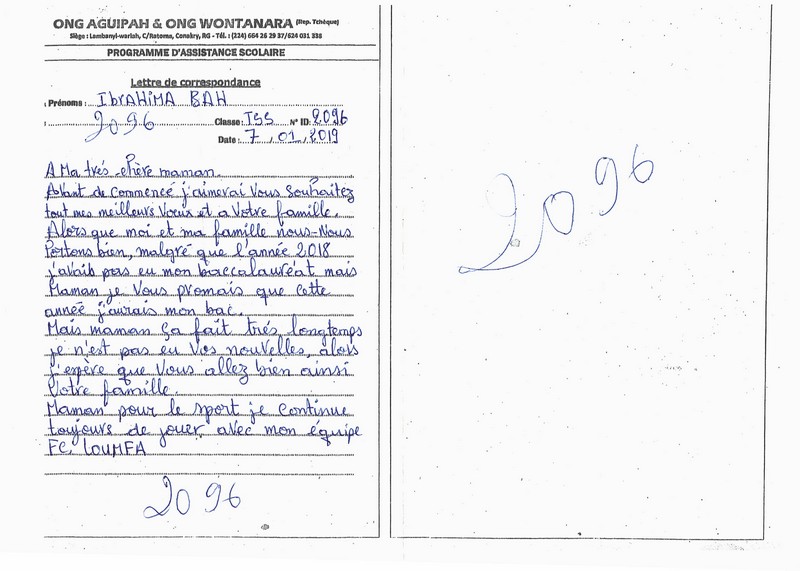 ONG AGUIPAH & ONG WONTANARA (Rep. Tchèque)
Siège : Lambanyi-wariah, C/Ratoma, Conakry, RG - Tél. : (224) 664 26 29 37/624 031 338
PROGRAMME D'ASSISTANCE SCOLAIRE
Lettre de correspondance
Prénoms : IbrAHiMA BAH
: 2096 Classe : TSS N° ID: 2096
Date : 7 , 01 , 2019
A Ma trés chère maman.
Avant de commencé j'aimerai Vous Souhaitez
tout mes meilleurs Vœux et a Votre famille.
Alors que moi et ma famille nous-Nous
Portons bien, malgré que l'année 2018
j'avais pas eu mon baccalauréat mais
Maman je Vous promais que cette
année j'aurais mon bac.
Mais maman ça fait trés longtemps
je n'est pas eu Vos nouvelles, alors
j'espère que Vous allez bien ainsi
Votre famille.
Maman pour le sport je continue
toujours de jouer avec mon équipe
FC LOUMFA
2096
2096